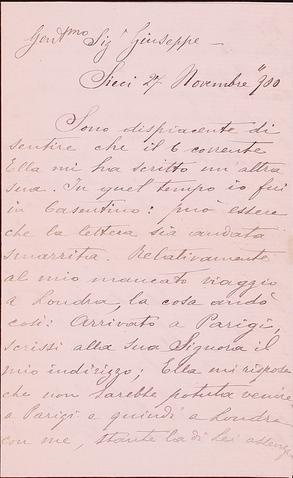 Gent.mo Sig.r Giuseppe —
Sieci 27 Novembre "900
Sono dispiacente di
sentire che il 6 corrente
Ella mi ha scritto un altra
sua. In quel tempo io fui
in Casentino: può essere
che la lettera sia andata
smarrita. Relativamente
al mio mancato viaggio
a Londra, la cosa andò
così: Arrivato a Parigi,
scrissi alla sua Signora il
mio indirizzo; Ella mi rispose
che non sarebbe potuta venire
a Parigi e quindi a Londra
con me, stante la di Lei assenza